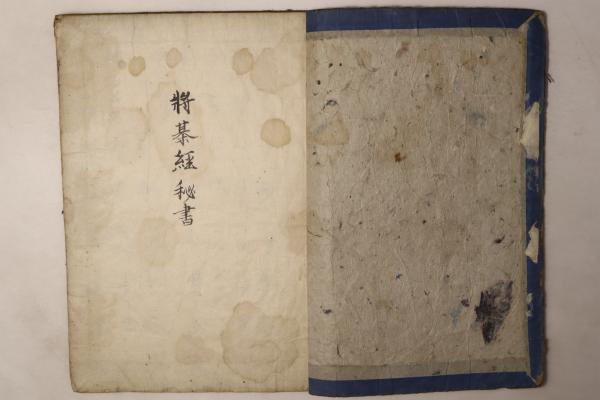 將棊經秘書